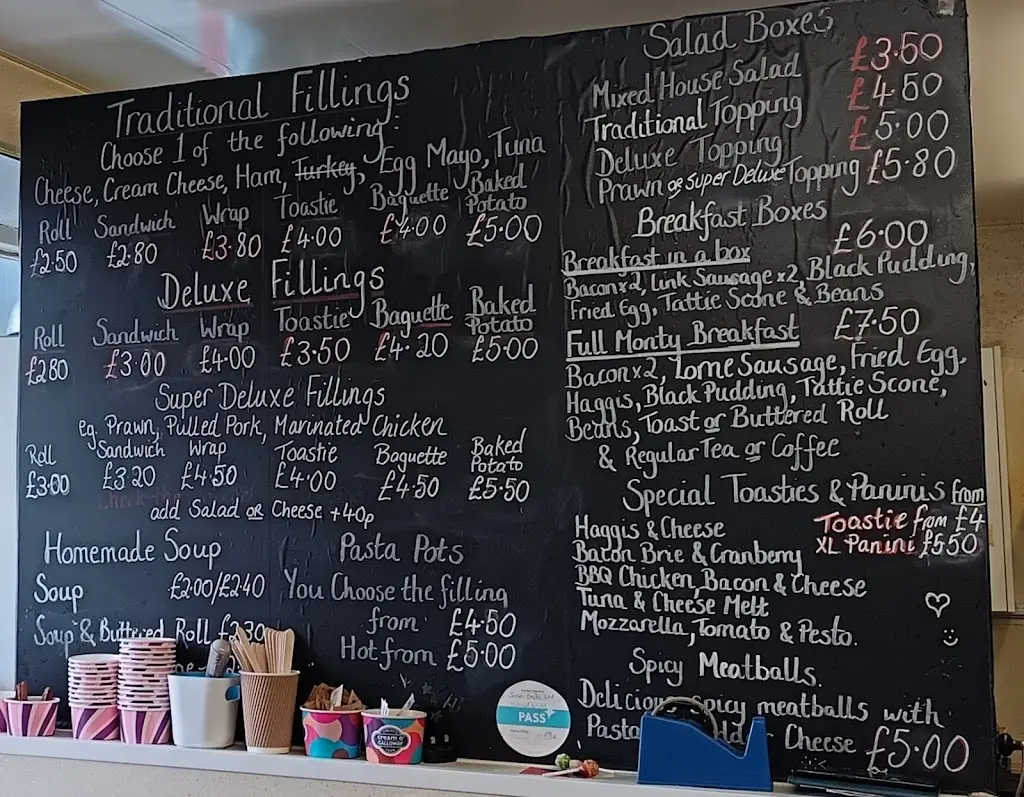 Traditional Fillings
Choose 1 of the following:
Cheese, Cream Cheese, Ham, Turkey, Egg Mayo, Tuna
Roll Sandwich Wrap Toastie Baguette Baked Potato
£2.50 £2.80 £3.80 £4.00 £4.00 £5.00
Deluxe Fillings
Roll Sandwich Wrap Toastie Baguette Baked Potato
£2.80 £3.00 £4.00 £3.50 £4.20 £5.00
Super Deluxe Fillings
eg. Prawn, Pulled Pork, Marinated Chicken
Roll Sandwich Wrap Toastie Baguette Baked Potato
£3.00 £3.20 £4.50 £4.00 £4.50 £5.50
add Salad or Cheese +40p
Homemade Soup
Soup £2.00/£2.40
Soup & Buttered Roll
Pasta Pots
You Choose the filling
from £4.50
Hot from £5.00
Salad Boxes
Mixed House Salad £3.50
Traditional Topping £4.50
Deluxe Topping £5.00
Prawn or Super Deluxe Topping £5.80
Breakfast Boxes
Breakfast in a box £6.00
Bacon x2, Link Sausage x2, Black Pudding,
Fried Egg, Tattie Scone & Beans
Full Monty Breakfast £7.50
Bacon x2, Lorne Sausage, Fried Egg.
Haggis, Black Pudding, Tattie Scone,
Beans, Toast or Buttered Roll
& Regular Tea or Coffee
Special Toasties & Paninis from
Toastie from £4
XL Panini £550
Haggis & Cheese
Bacon Brie & Cranberry
BBQ Chicken, Bacon & Cheese
Tuna & Cheese Melt
Mozzarella, Tomato & Pesto.
Spicy Meatballs.
Delicious spicy meatballs with
Pasta Cheese £5.00
PASS
cream o' GALLOWAY